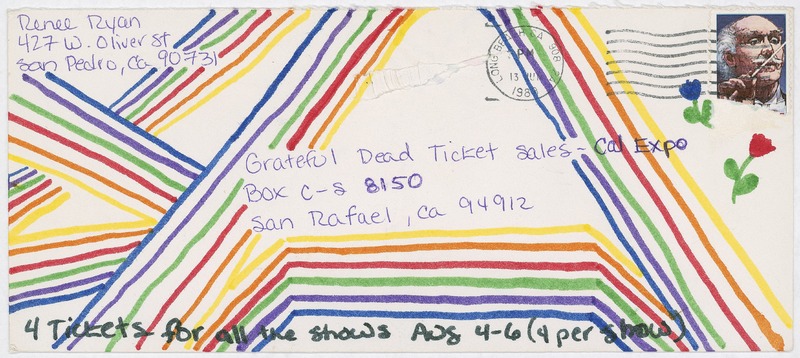 Renee Ryan
427 W. Oliver St
San Pedro, Ca 90731
LONG BEACH CA 908
PM
13
198
Grateful Dead Ticket Sales - Cal Expo
Box C-S 8150
San Rafael, Ca 94912
4 Tickets for all the shows Aug 4-6 (4 per show)